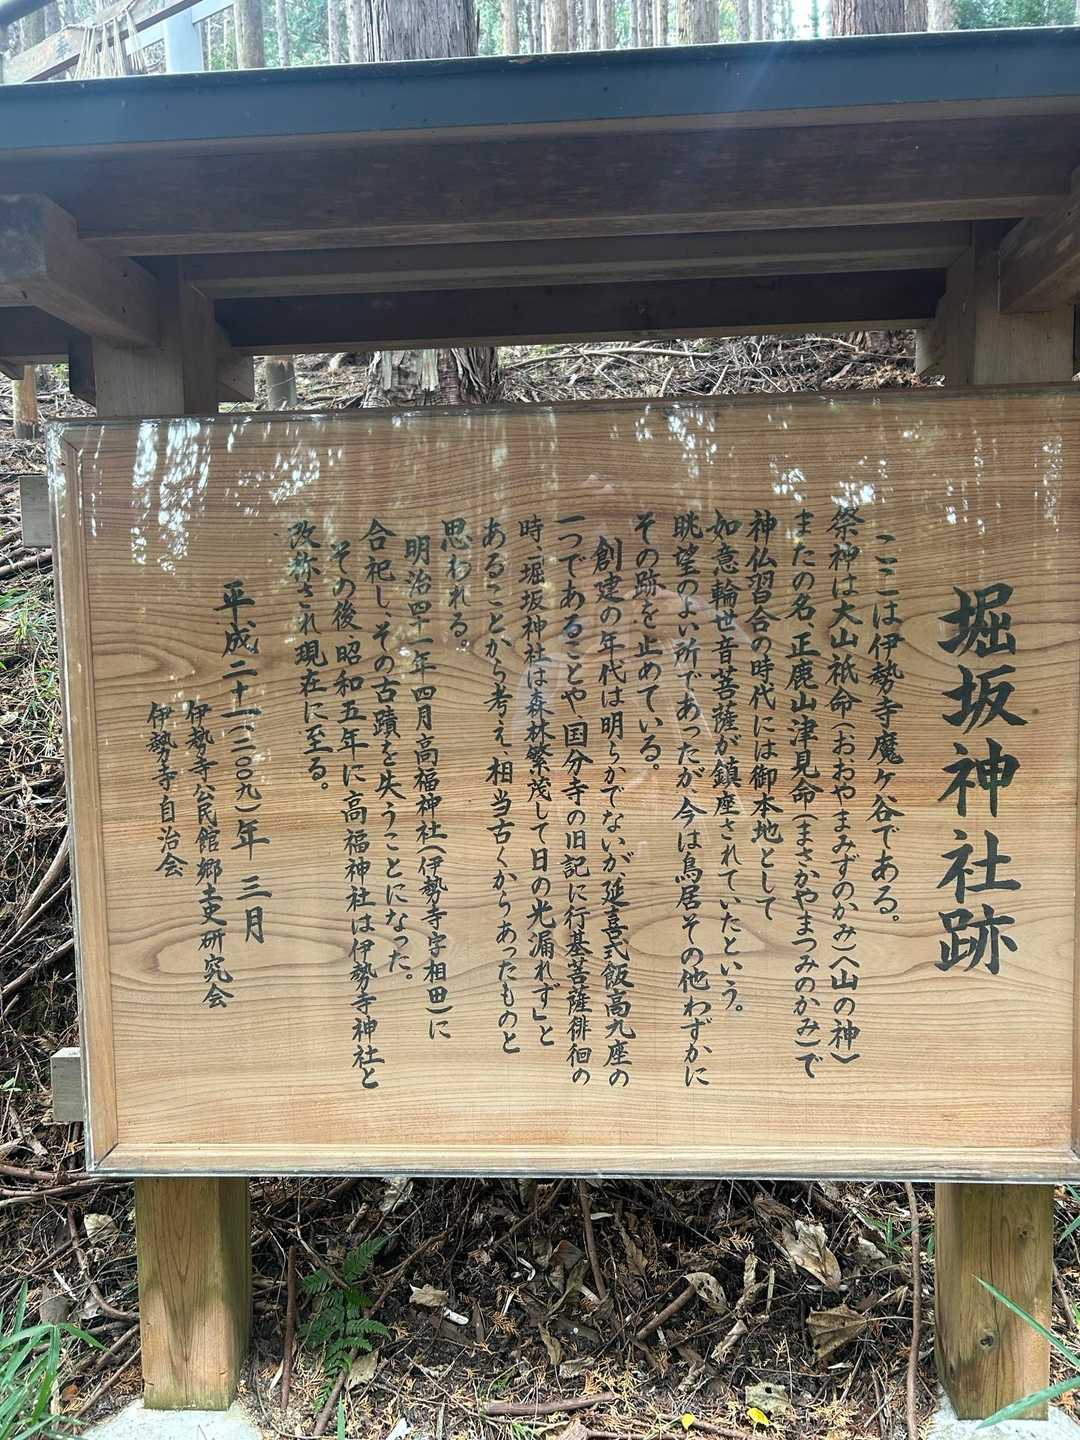 堀坂神社跡
ここは伊勢寺魔ヶ谷である。
祭神は大山祇命(おおやまみずのかみ)〈山の神〉
またの名、正鹿山津見命(まさかやまつみのかみ)で
神仏習合の時代には御本地として
如意輪世音菩薩が鎮座されていたという。
眺望のよい所であったが、今は鳥居その他わずかに
その跡を止めている。
創建の年代は明らかでないが、延喜式飯高九座の
一つであることや国分寺の旧記に行基菩薩徘徊の
時、「堀坂神社は森林繁茂して日の光漏れず」と
あることから考え、相当古くからあったものと
思われる。
明治四十一年四月高福神社(伊勢寺字相田)に
合祀し、その古蹟を失うことになった。
その後、昭和五年に高福神社は伊勢寺神社と
改称され現在に至る。
平成二十一(二〇〇九)年 三月
伊勢寺公民館郷土史研究会
伊勢寺自治会